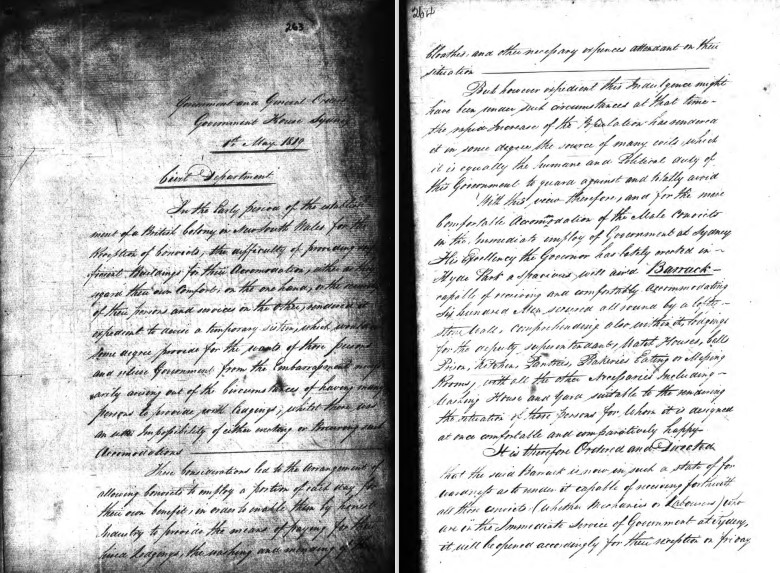 263
Government and General Orders
Government House Sydney
1st May 1819
Civil Department
In the Early period of the establish
ment of a British Colony in New South Wales for the
Reception of Convicts, the difficulty of providing
Buildings for their Accomodation, either as to
regard their own Comfort, on the one hand, or the
of their persons and services on the other, rendered it
expedient to devise a temporary System, which would in
some degree, provide for the wants of those persons
and relieve Government from the Embarrassment
arising out of the Circumstances of having many
persons to provide with lodgings, whilst there was
an Impossibility of either erecting or Procuring such
Accomodations
These considerations led to the Arrangement of
allowing Convicts to employ a portion of each day for
their own benefit, in order to enable them by honest
Industry to provide the means of paying for
lodgings, the washing and mending of
264
Cloathes, and other necessary expences attendant on their
situation
But however expedient this Indulgence might
have been under such circumstances at that time
the rapid Increase of the Population has rendered
it in some degree, the source of many evils, which
it is equally the humane and Political duty of
this Government to guard against and totally avoid
With this view therefore, and for the more
Comfortable Accomodation of the Male Convicts
in the immediate employ of Government at Sydney
His Excellency the Governor has lately erected in
Hyde Park a spacious, well aired Barrack
capable of receiving and comfortably Accommodating
Six hundred Men secured all round by a lofty
stone Wall, comprehending also within it, lodgings
for the deputy superintendants, Watch Houses, Cells
Prison, Kitchen, Pantries, Bakeries Eating or Messing
Rooms, with all the other Necessaries Including
Washing House and Yard suitable to the rendering
the situation of those Persons for whom it is designed
at once comfortable and comparatively happy
It is therefore Ordered and Directed
that the said Barrack is now in such a state of for
wardness as to render it capable of receiving forthwith
all those Convicts (whether Mechanics or Labourers) who
are in the Immediate Service of Government at Sydney,
it will be opened accordingly for their reception on Friday